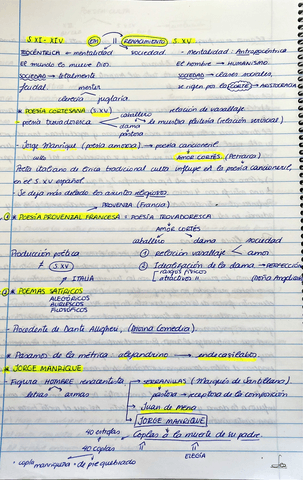 S XI - XIV EM || RENACIMIENTO S. XV
TEOCÉNTRICA ← mentalidad sociedad - mentalidad: Antropocéntrica
El mundo lo mueve Dios El hombre → HUMANISMO.
SOCIEDAD → totalmente SOCIEDAD → clases sociales,
feudal. mester se rigen por la CORTE → ARISTOCRACIA
clerecía juglaría
* POESÍA CORTESANA (S.XV) relación de vasallaje
- poesía trovadoresca caballero
dama
pastora
- Jorge Manrique (poesía amorosa) → poesía cancioneril
culta AMOR CORTÉS (Petrarca)
Poeta italiano de lírica tradicional culta influye en la poesía cancioneril,
en el S. XV español.
- Se deja más delado los asuntos religiosos.
PROVENZA (Francia)
① * POESÍA PROVENZAL FRANCESA = POESÍA TROVADORESCA
AMOR CORTÉS
caballero → dama sociedad
Producción poética ① relación vasallaje amor
≠ S.XV ② Idealización de la dama → PERFECCIÓN
ITALIA rasgos físicos
atractivos (Deña Angelicata)
② * POEMAS SATÍRICOS
ALEGÓRICOS
BURLESCOS
FILOSÓFICOS
- Procedente de Dante Alighieri, (Divina Comedia).
* Pasamos de la métrica: alejandrino → endecasílabo
* JORGE MANRIQUE
- Figura HOMBRE renacentista → SERRANILLAS (Marqués de Santillana).
letras armas pastora → receptora de la composición
→ Juan de Mena
→ JORGE MANRIQUE
40 estrofas ← Coplas a la muerte de su padre.
40 coplas
ELEGÍA
- copla manriqueña = de pie quebrado